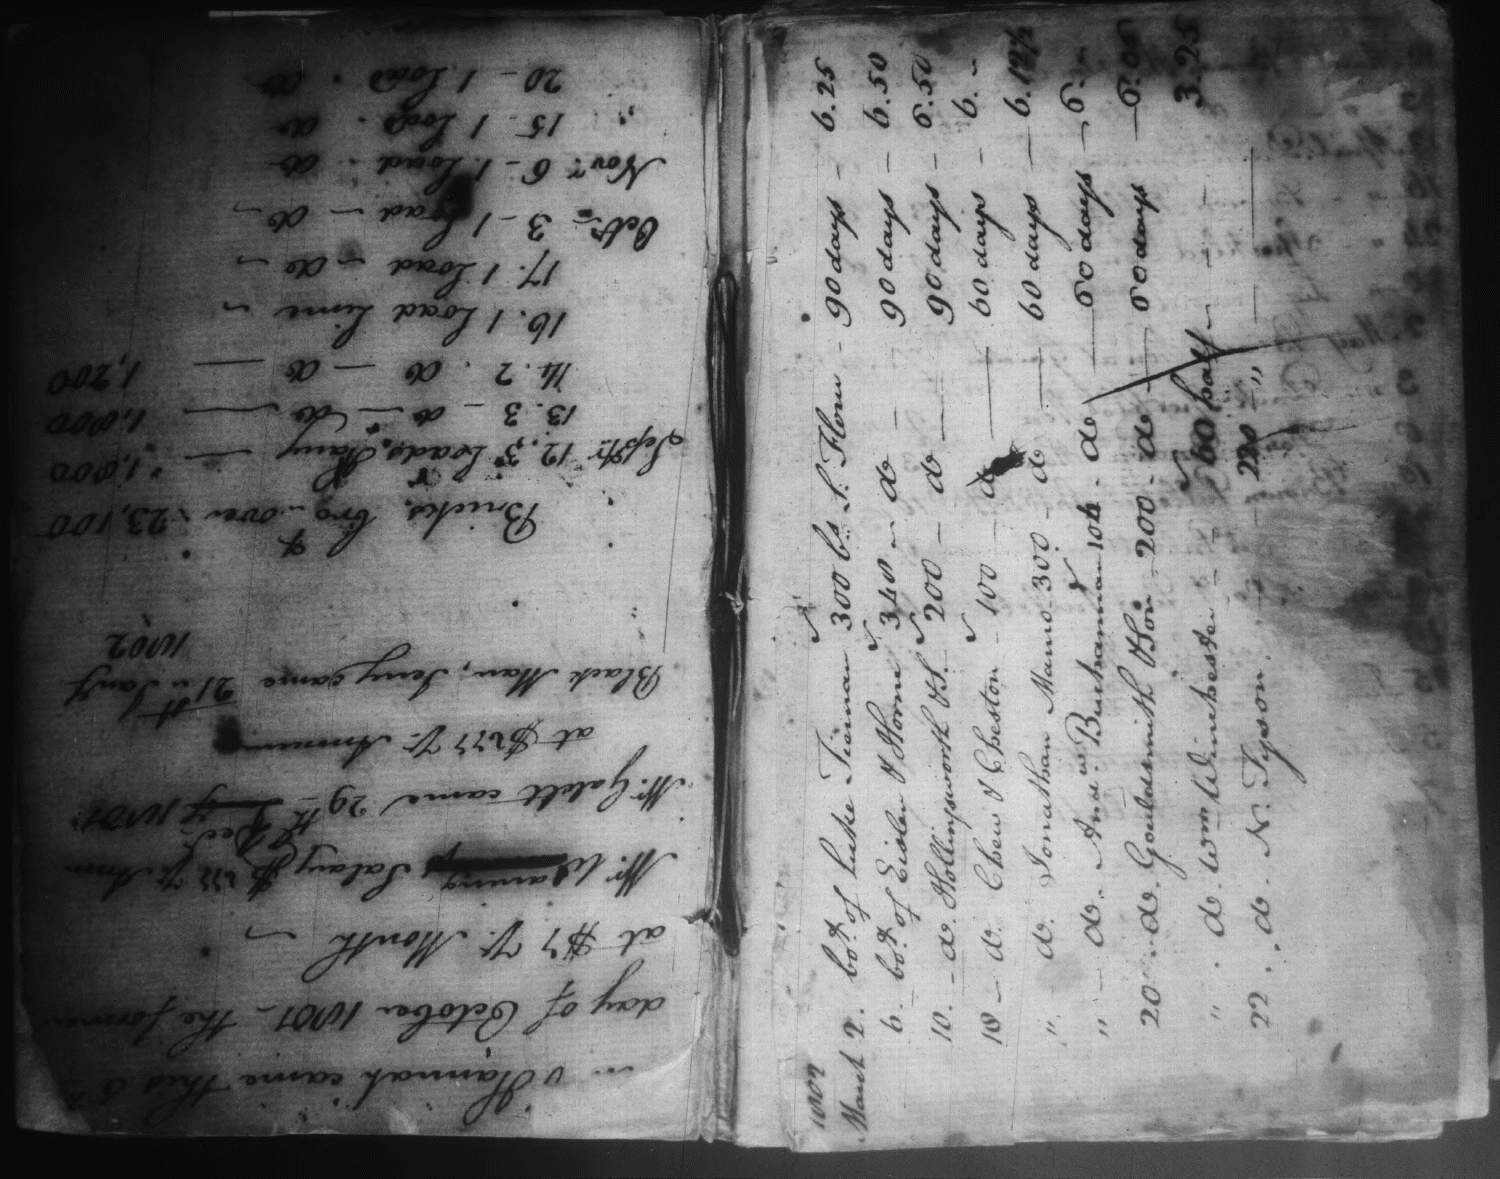 & Hannah came this 5th
day of October 1801 - the former
at $7 Pr. Month
Mr. Waring Salary $ 277 Pr. Ann
Mr. Galett came 29th Decr. 1801
at $277 Pr. Annum
Black Man, Jerry came 21st Jany
1802
Bricks, bro. over 23,100
Septr. 12. 3 Loads, Many — 1,000
13. 3 - do - do — 1,000
14. 2. do — do — 1,200
16. 1 Load Lime
17. 1 Load - do -
Octr. - 3 - 1 Load - do -
Novr. 6 - 1 Load - do
" 15 - 1 Load . do
20 - 1 Load . do
1802
March 2. bot. of Luke Tiernan 300 bs. S. Flour - 90 days - 6.25
6. - bot. of Eisler & Horne 348 - do - 90 days - 6.50
10. - do. Hollingsworth & S. 200 - do - 90 days - 6.50
18 - do. Chew & Cheston - 100 - do - 60 days - 6. -
" . do. Jonathan Manro 300 - do - 60 days - 6.12½
" - do. Andw. Buchannan 104 - do - 60 days - 6. -
20 . do. Gouldsmith & Son - 200 - do - 60 days - 6.06
" . do. Wm Winchester - 60 half - 3.25
22 . do. N. Tyson — 220 "